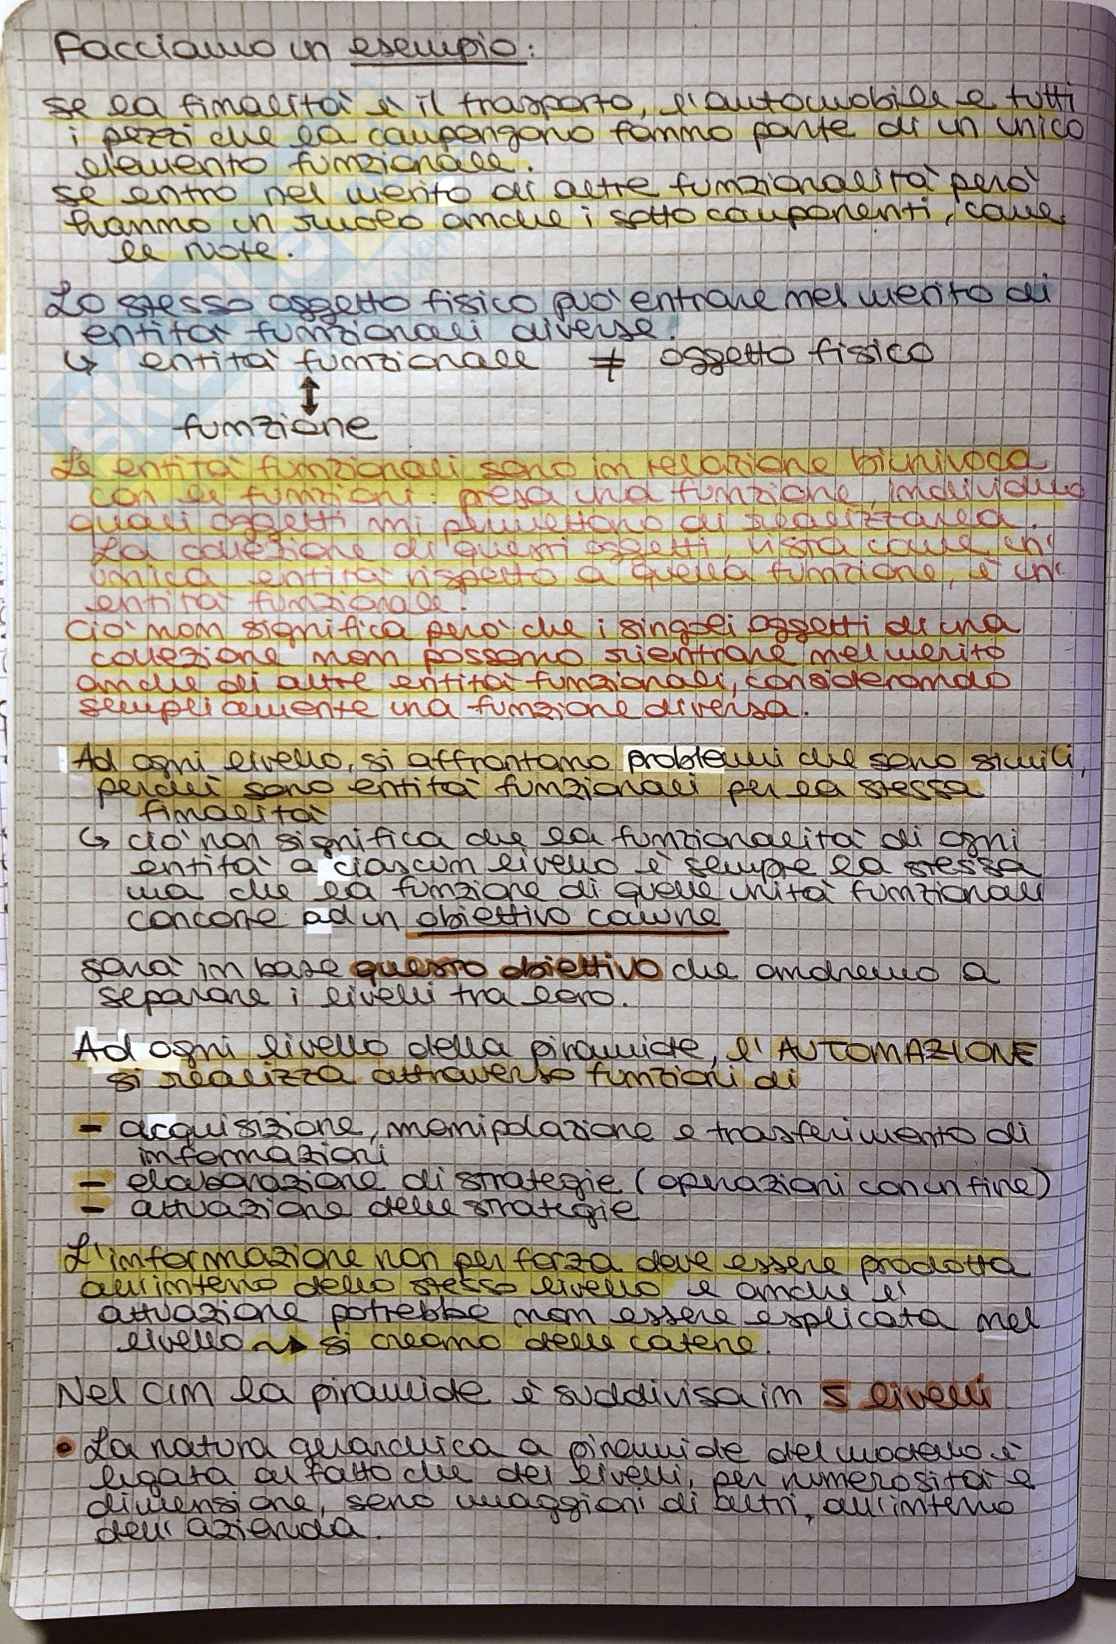 Facciamo un esempio:
se la finalità è il trasporto, l'automobile e tutti
i pezzi che la compongono fanno parte di un unico
elemento funzionale.
se entro nel merito di altre funzionalità però
hanno un ruolo anche i sotto componenti, come
le ruote.
Lo stesso oggetto fisico può entrare nel merito di
entità funzionali diverse.
↳ entità funzionale ≠ oggetto fisico
↕
funzione
Le entità funzionali sono in relazione biunivoca
con le funzioni: presa una funzione, individuo
quali oggetti mi permettono di realizzarla.
La collezione di questi oggetti, vista come un'
unica entità rispetto a quella funzione, è un'
entità funzionale.
Ciò non significa però che i singoli oggetti di una
collezione non possono rientrare nel merito
anche di altre entità funzionali, considerando
semplicemente una funzione diversa.
Ad ogni livello, si affrontano problemi che sono simili,
perché sono entità funzionali per la stessa
finalità
↳ ciò non significa che la funzionalità di ogni
entità a ciascun livello è sempre la stessa
ma che la funzione di quelle unità funzionali
concorre ad un obiettivo comune
sarà in base questo obiettivo che andremo a
separare i livelli tra loro.
Ad ogni livello della piramide, l'AUTOMAZIONE
si realizza attraverso funzioni di
- acquisizione, manipolazione e trasferimento di
informazioni
- elaborazione di strategie (operazioni con un fine)
- attuazione delle strategie
L'informazione non per forza deve essere prodotta
all'interno dello stesso livello e anche l'
attuazione potrebbe non essere esplicata nel
livello ~► si creano delle catene.
Nel CIM la piramide è suddivisa in 5 livelli
• La natura gerarchica a piramide del modello è
legata al fatto che dei livelli, per numerosità e
dimensione, sono maggiori di altri, all'interno
dell'azienda.